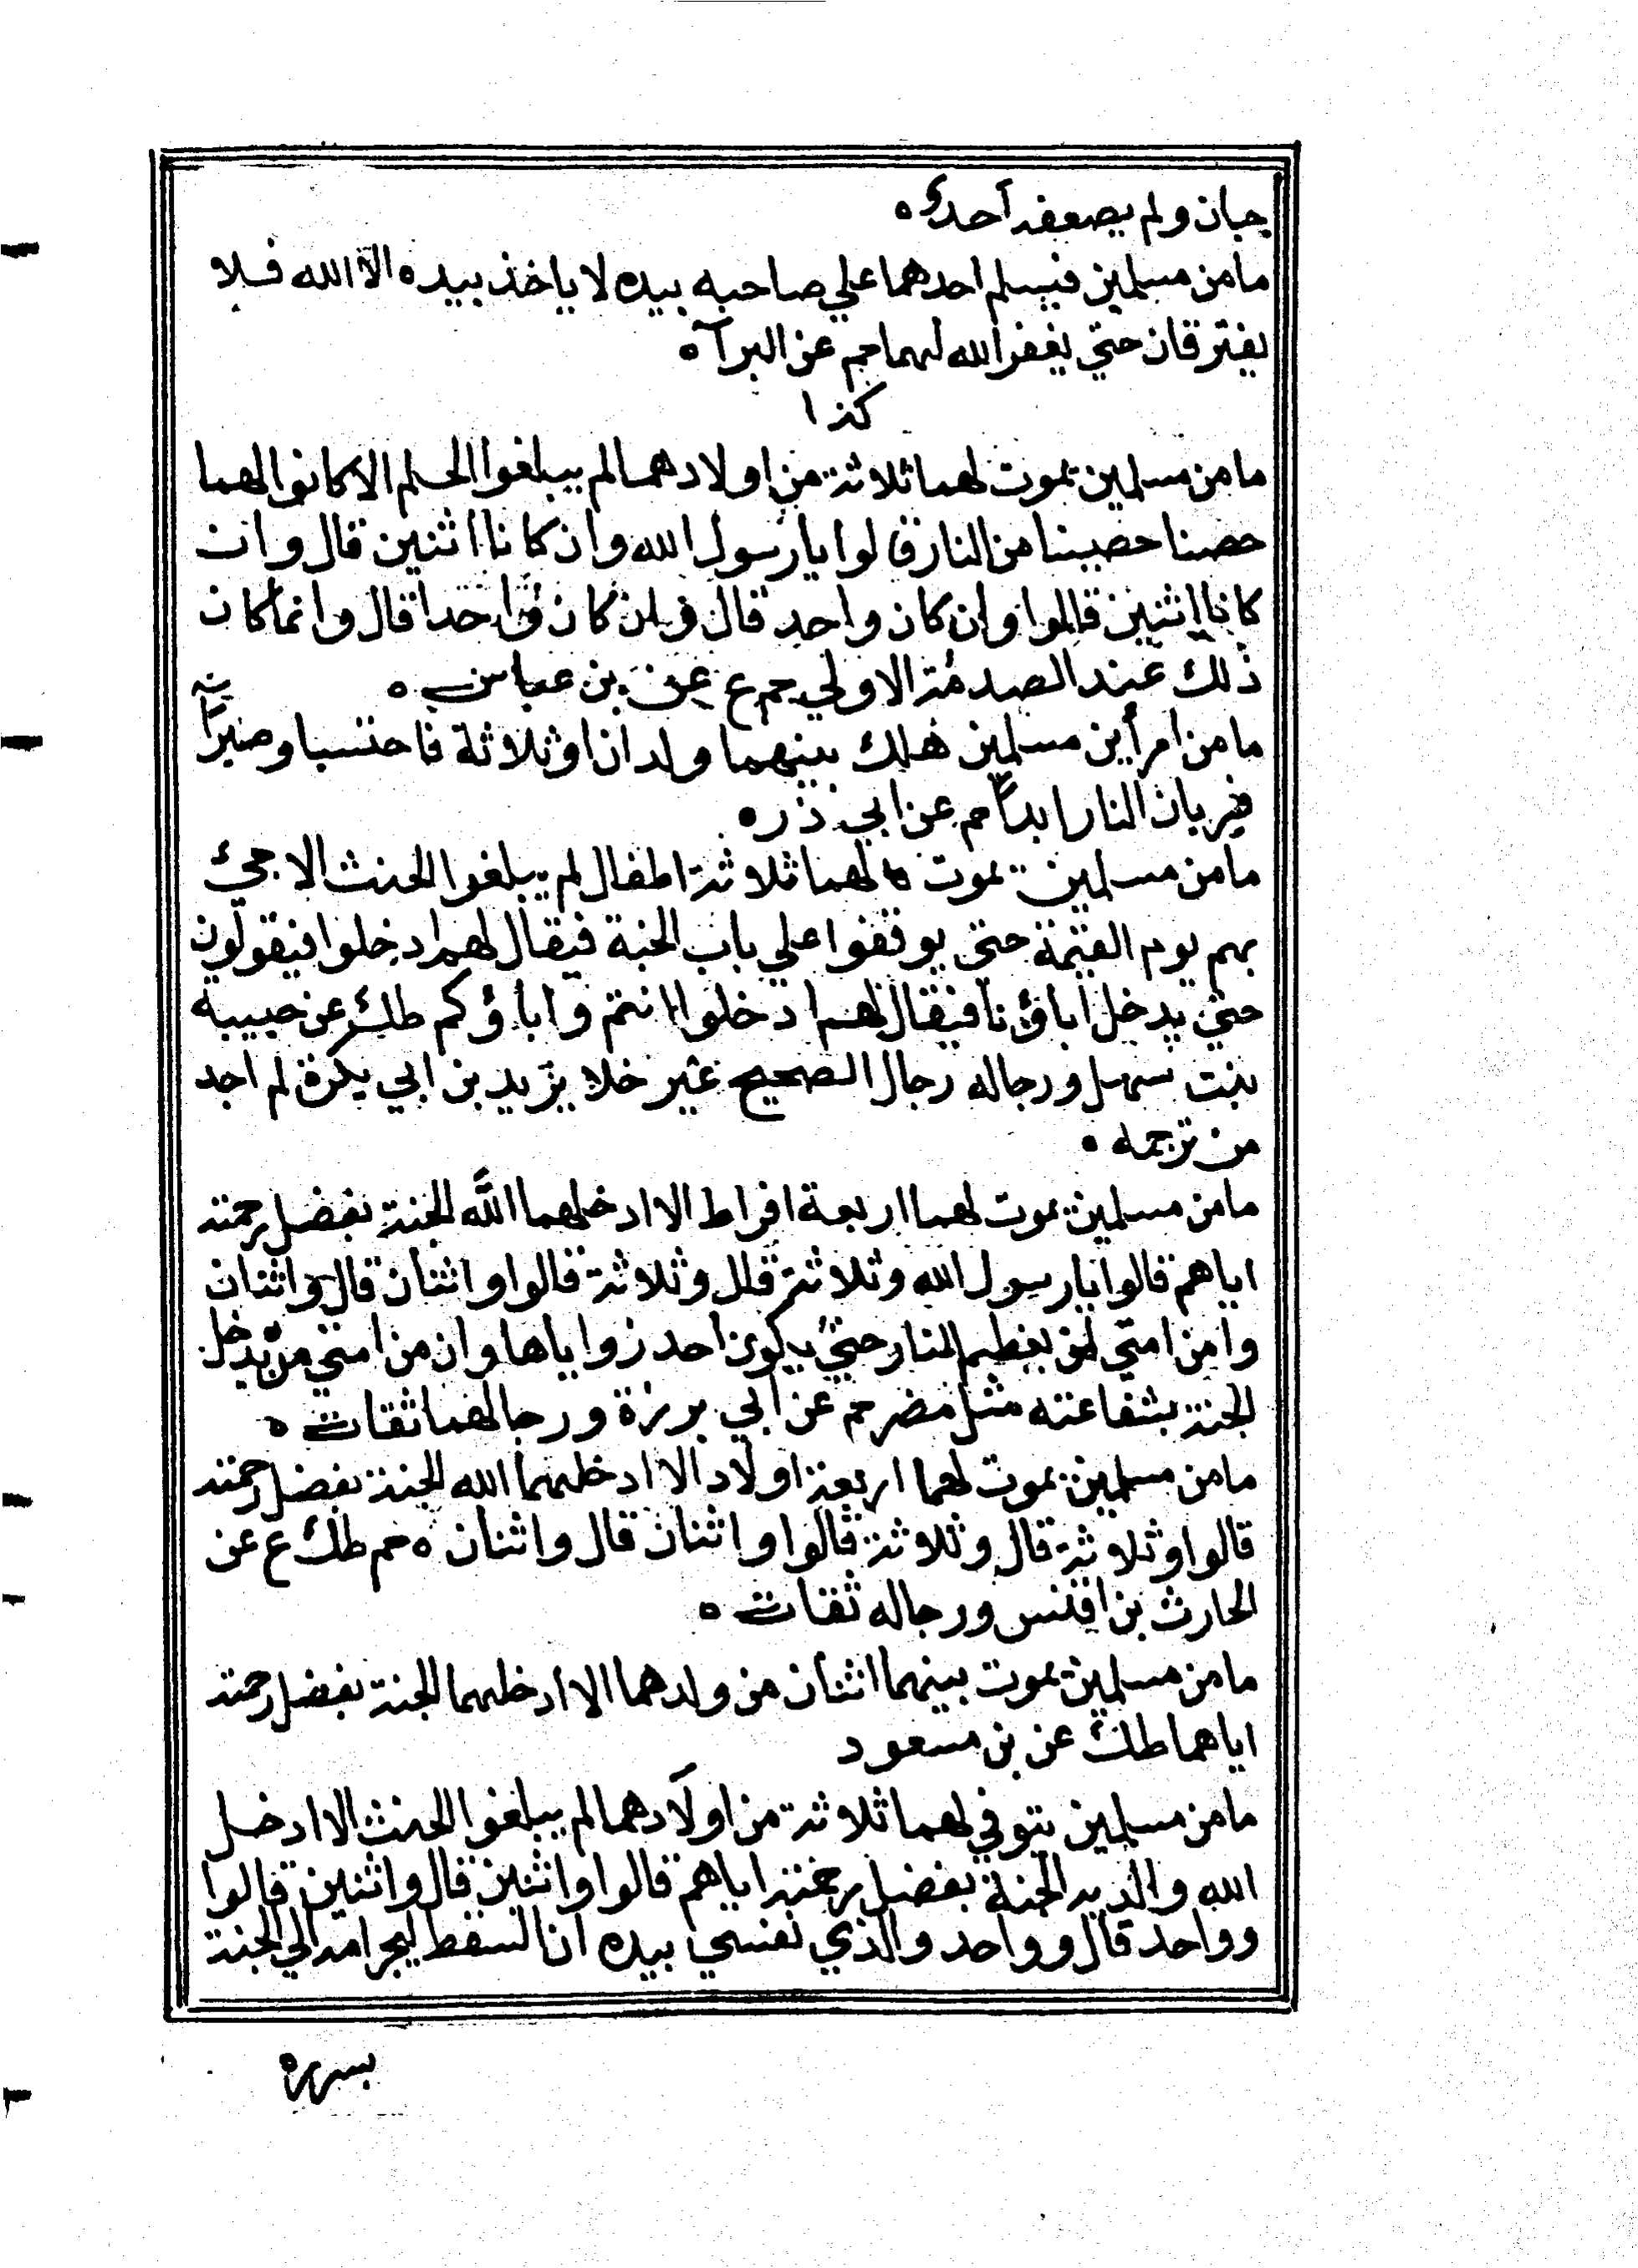 حبان ولم يضعفه احد ه
مامن مسلمين فيسلم احدهما علي صاحبه بيده لا ياخذ بيده الا الله فلا
يفترقان حتي يغفر الله لهما حم عن البرآ ه
كذا
مامن مسلمين يموت لهما ثلاثة من اولادهما لم يبلغوا الحلم الا كانوا لهما
حصنا حصينا من النار قالوا يا رسول الله وان كانا اثنين قال وان
كانا اثنين قالوا وان كان واحد قال وان كان واحدا قال وانما كان
ذلك عند الصدمة الاولي حم ع عن بن عباس ه
مامن امرأين مسلمين هلك بينهما ولدان او ثلاثة فاحتسبا وصبرا
فيريان النار ابدا حم عن ابي ذر ه
مامن مسلمين يموت لهما ثلاثة اطفال لم يبلغوا الحنث الا جيئ
بهم يوم القيمة حتى يوقفوا علي باب الجنة فيقال لهم ادخلوا فيقولون
حتي يدخل اباؤنا فيقال لهم ادخلوا انتم واباؤكم طك عن حبيبة
بنت سهل ورجاله رجال الصحيح غير خلا يزيد بن ابي بكرة لم اجد
من ترجمه ه
مامن مسلمين يموت لهما اربعة افراط الا ادخلهما الله الجنة بفضل رحمته
اياهم قالوا يا رسول الله وثلاثة قال وثلاثة قالوا واثنان قال واثنان
وامن امتي لمن يعظم للنار حتي يكون احد زواياها وان من امتي من يدخل
الجنة بشفاعته مثل مضر حم عن ابي برزة ورجالهما ثقات ه
مامن مسلمين يموت لهما اربعة اولاد الا ادخلهما الله الجنة بفضل رحمته
قالوا وثلاثة قال وثلاثة قالوا واثنان قال واثنان ه حم طك ع عن
الحارث بن اقنس ورجاله ثقات ه
مامن مسلمين يموت بينهما اثنان من ولدهما الا ادخلهما الجنة بفضل رحمته
اياهما طك عن بن مسعود
مامن مسلمين يتوفي لهما ثلاثة من اولادهما لم يبلغوا الحنث الا ادخل
الله والديه الجنة بفضل رحمته اياهم قالوا واثنين قال واثنين قالوا
وواحد قال وواحد والذي نفسي بيده ان السقط ليجر امه الي الجنة
بسرره